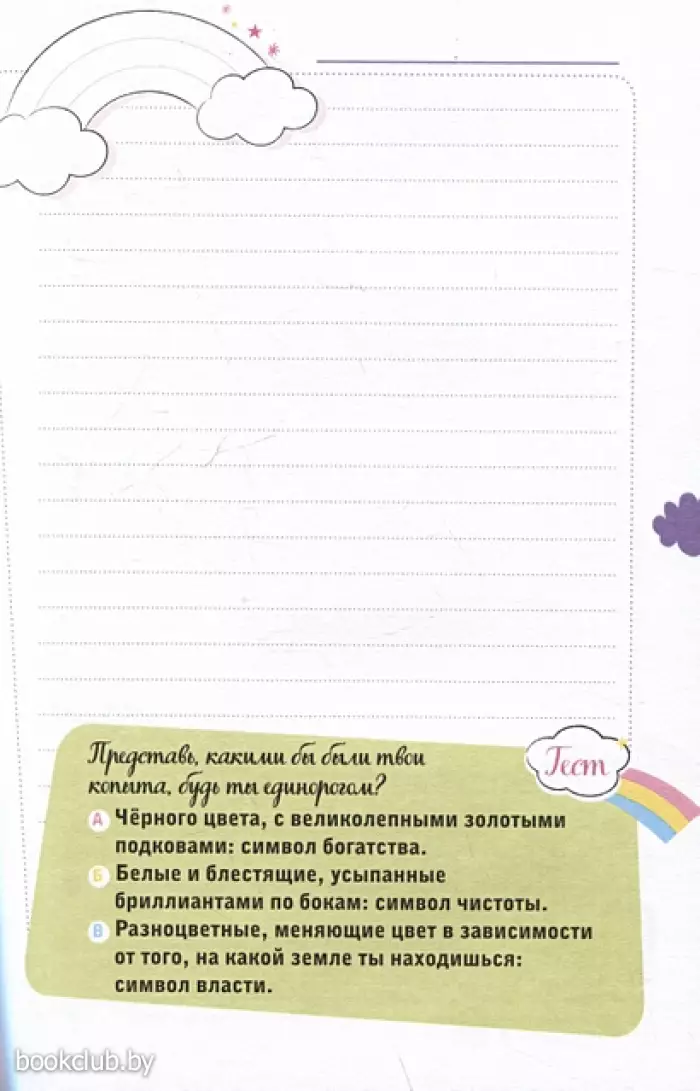 Тест
Представь, какими бы были твои
копыта, будь ты единорогом?
А Чёрного цвета, с великолепными золотыми
подковами: символ богатства.
Б Белые и блестящие, усыпанные
бриллиантами по бокам: символ чистоты.
В Разноцветные, меняющие цвет в зависимости
от того, на какой земле ты находишься:
символ власти.
bookclub.by